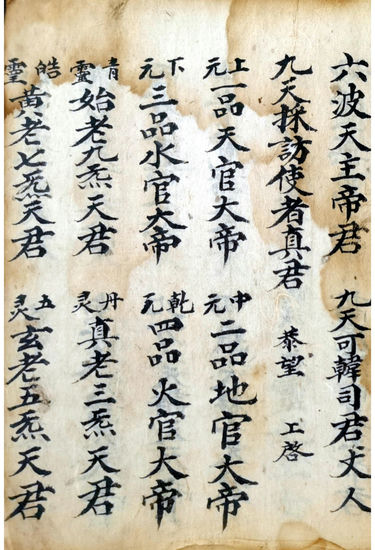 六波天主帝君 九天可韓司君丈人
九天採訪使者真君 恭望 上啓
上元一品天官大帝 中元二品地官大帝
下元三品水官大帝 乾元四品火官大帝
青靈始老九炁天君 丹灵真老三炁天君
皓靈黄老七炁天君 五灵玄老五炁天君